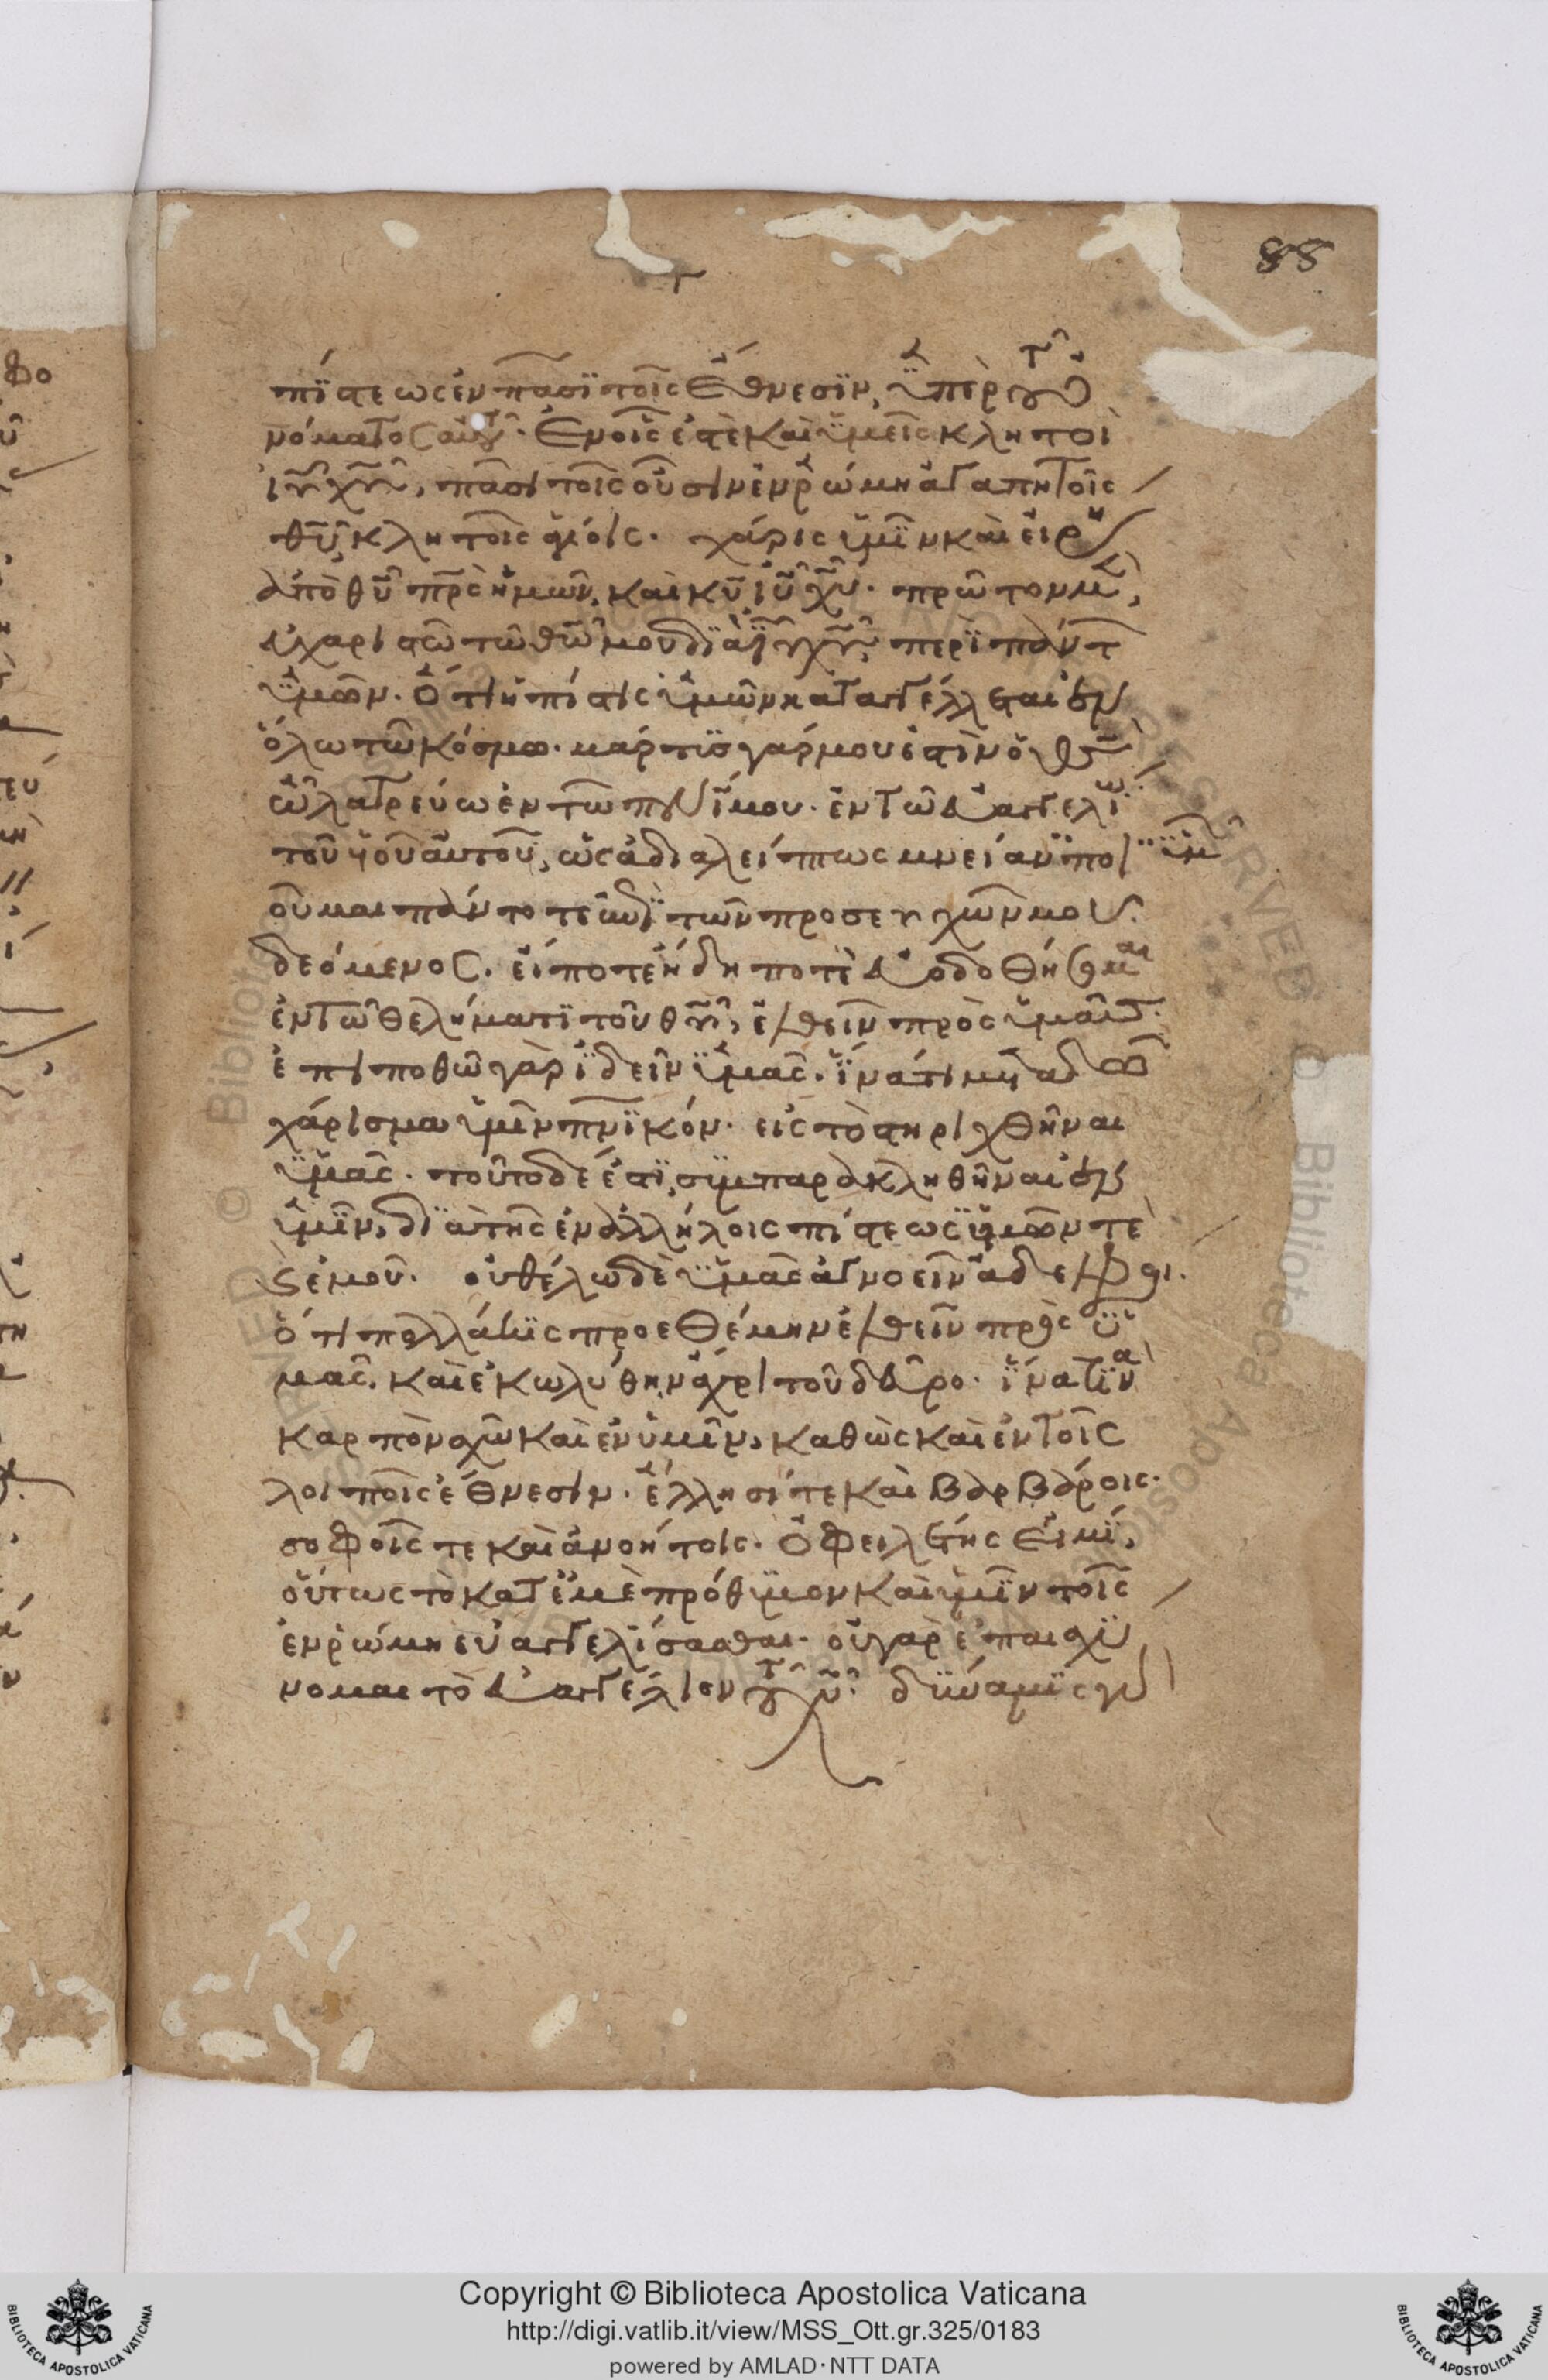 88
πίστεως ἐν πᾶσι τοῖς ἔθνεσιν, ὑπὲρ τοῦ ὀ
νόματος αὐτοῦ. ἐν οἷς ἐστὲ καὶ ὑμεῖς κλητοὶ
ἰῦ χῦ, πᾶσι τοῖς οὖσιν ἐν ρώμη ἀγαπητοῖς
θῦ, κλητοῖς ἁγίοις. χάρις ὑμῖν καὶ εἰρή
ἀπὸ θῦ πρς ἡμῶν, καὶ κῦ ἰῦ χῦ. πρῶτον μὲν,
εὐχαριστῶ τῶ θῶ μου διὰ ἰῦ χῦ, περὶ πάντ
ὑμῶν. ὅτι ἡ πίστις ὑμῶν καταγγέλλεται ἐν
ὅλω τῶ κόσμω. μάρτυς γάρ μου ἐστὶν ὁ θς
ὧ λατρεύω ἐν τῶ πνί μου. ἐν τῶ εὐαγγελίω
τοῦ υἱοῦ αὐτοῦ, ὡς ἀδιαλείπτως μνείαν ὑμῶν ποι
οῦμαι πάντοτε ἐπὶ τῶν προσευχῶν μου.
δεόμενος. εἴποτε ἤδη ποτὲ εὐοδοθήσομαι
ἐν τῶ θελήματι τοῦ θῦ, ἐλθεῖν πρὸς ὑμᾶς.
ἐπιποθῶ γὰρ ἰδεῖν ὑμᾶς. ἵνα τι μεταδῶ
χάρισμα ὑμῖν πνικόν. εἰς τὸ στηριχθῆναι
ὑμᾶς. τοῦτο δέ ἐστι, συμπαρακληθῆναι ἐν
ὑμῖν, διὰ τῆς ἐν ἀλλήλοις πίστεως ὑμῶν τὲ
καὶ ἐμοῦ. οὐ θέλω δὲ ὑμᾶς ἀγνοεῖν ἀδελφοι.
ὅτι πολλάκις προεθέμην ἐλθεῖν πρὸς ὑ
μᾶς. καὶ ἐκωλύθην ἄχρι τοῦ δεῦρο. ἵνα τινὰ
καρπὸν σχῶ καὶ ἐν ὑμῖν, καθὼς καὶ ἐν τοῖς
λοιποῖς ἔθνεσιν. ἕλλησί τε καὶ βαρβάροις.
σοφοῖς τε καὶ ἀνοήτοις. ὀφειλέτης εἰμί,
οὕτως τὸ κατ ἐμὲ πρόθυμον καὶ ὑμῖν τοῖς
ἐν ρώμη εὐαγγελίσασθαι. οὐ γὰρ ἐπαισχύ
νομαι τὸ εὐαγγέλιον τοῦ χῦ. δύναμις γὰρ
Copyright © Biblioteca Apostolica Vaticana
http://digi.vatlib.it/view/MSS_Ott.gr.325/0183
powered by AMLAD·NTT DATA
BIBLIOTECA APOSTOLICA VATICANA
BIBLIOTECA APOSTOLICA VATICANA